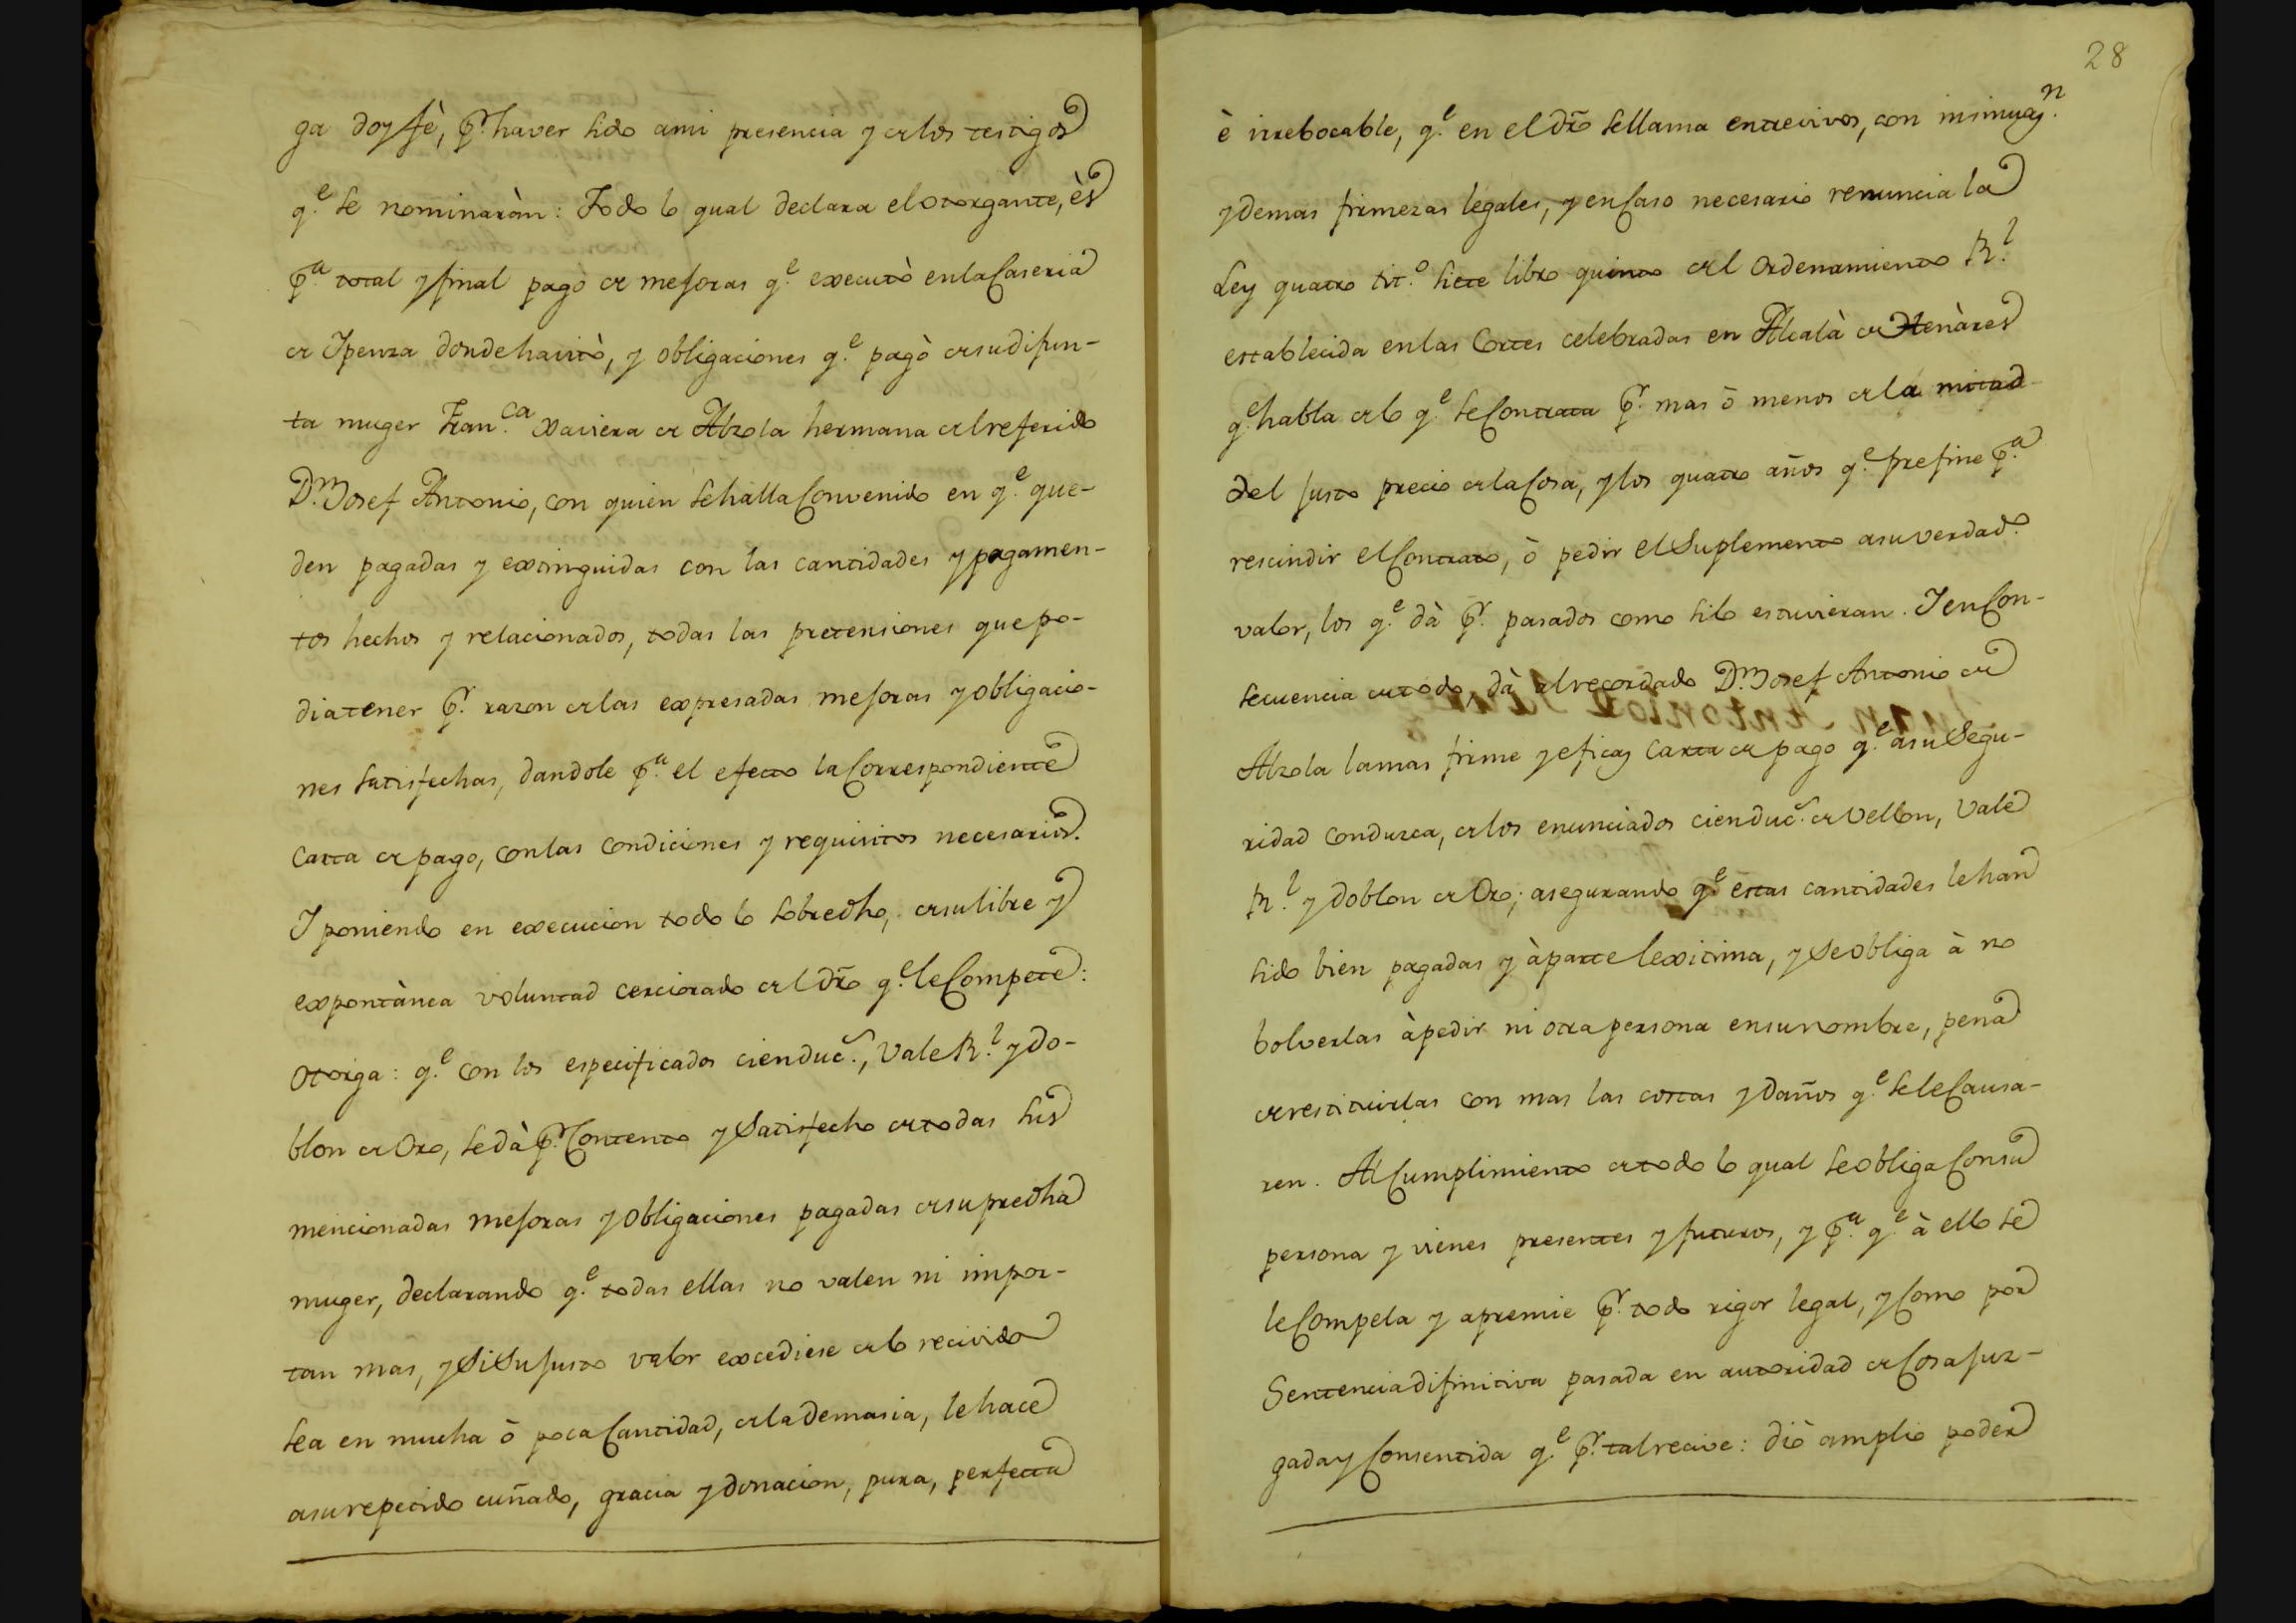 ga doy fè, pr. haver sido ami presencia y de los testigos
q.e se nominaràn: Todo lo qual declara el otorgante, ès
p.a total y final pago de mejoras q.e executò en la Caseria
de Ipenza donde havitò, y obligaciones q.e pagò de su difun-
ta muger Fran.ca Xaviera de Alzola hermana del referido
D.n Josef Antonio, con quien se halla Convenido en q.e que-
den pagadas y extinguidas con las cantidades y pagamen-
tos hechos y relacionados, todas las pretensiones que po-
dia tener pr. razon de las expresadas mejoras y obligacio-
nes satisfechas, dandole p.a el efecto la Correspondiente
Carta de pago, con las condiciones y requisitos necesarios.
I poniendo en execucion todo lo sobredho, de su libre y
expontànea voluntad cerciorado del dro q.e le Compete:
Otorga: q.e con los especificados cien duc.s, Vale R.l y do-
blon de Oro, se dà pr. Contento y Satisfecho de todas sus
mencionadas mejoras y obligaciones pagadas de su predha
muger, declarando q.e todas ellas no valen ni impor-
tan mas, y Si Su justo valor excediese de lo recivido
sea en mucha ò poca Cantidad, de la demasia, le hace
a su repetido cuñado, gracia y donacion, pura, perfecta
28
è irrebocable, q.e en el dro se llama entrevivos, con insinuaz.n
y demas firmezas legales, y en Caso necesario renuncia la
Ley quatro tit.o siete libro quinto del Ordenamiento R.l
establecida en las Cortes celebradas en Alcalà de Henàres
q.e habla de lo q.e se Contrata pr. mas ò menos de la mitad
del justo precio de la Cosa, y los quatro años q.e prefine p.a
rescindir el Contrato, ò pedir el Suplemento a su verdad.o
valor, los q.e dà pr. pasados como si lo estuvieran. I en Con-
secuencia de todo dà al recordado D.n Josef Antonio de
Alzola la mas firme y eficaz Carta de pago q.e a su Segu-
ridad conduzca, de los enunciados cien duc.s de Vellon, Vale
R.l y doblon de Oro; asegurando q.e estas cantidades le han
sido bien pagadas y à parte lexitima, y Se obliga à no
bolverlas à pedir ni otra persona en su nombre, pena
de restituirlas con mas las costas y daños q.e se le Causa-
ren. Al Cumplimiento de todo lo qual se obliga Con su
persona y vienes presentes y futuros, y p.a q.e à ello se
le Compela y apremie pr. todo rigor legal, y Como por
Sentencia difinitiva pasada en autoridad de Cosa juz-
gada y Consentida q.e pr. tal recive: diò amplio poder